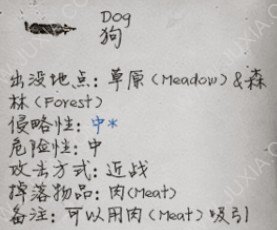 Dog
狗
出没地点：草原（Meadow）&森
林（Forest）
侵略性：中*
危险性：中
攻击方式：近战
掉落物品：肉(Meat)
备注：可以用肉（Meat）吸引